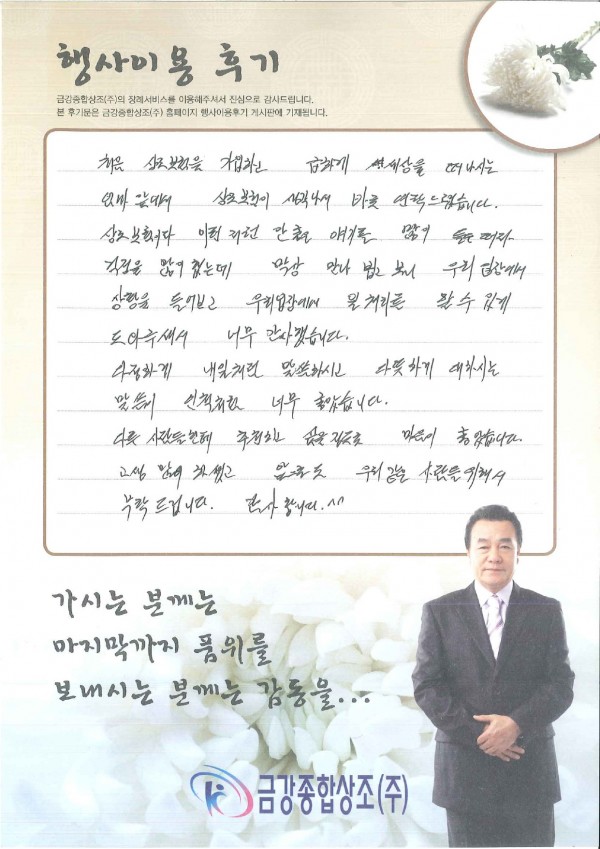 행사이용 후기
금강종합상조(주)의 장례서비스를 이용해주셔서 진심으로 감사드립니다.
본 후기문은 금강종합상조(주) 홈페이지 행사이용후기 게시판에 기재됩니다.
처음 상조보험을 가입하고 급하게 세상을 떠나시는
앞에서 상조보험이 생각나서 바로 연락드렸습니다.
상조보험이다 이런저런 안좋은 얘기를 많이 들은터라
걱정을 많이 했는데 막상 만나 뵙고 보니 우리 입장에서
상황을 들어보고 우리입장에서 일처리를 할 수 있게
도와주셔서 너무 감사했습니다.
다정하게 내일처럼 말씀하시고 따뜻하게 대하시는
말씀이 친척처럼 너무 좋았습니다.
다른 사람들한테 추천하고 싶을 정도로 마음이 좋았습니다.
고생 많이 하셨고 앞으로도 우리 같은 사람들을 위해서
부탁드립니다. 감사합니다.^^
가시는 분께는
마지막까지 품위를
보내시는 분께는 감동을...
금강종합상조(주)